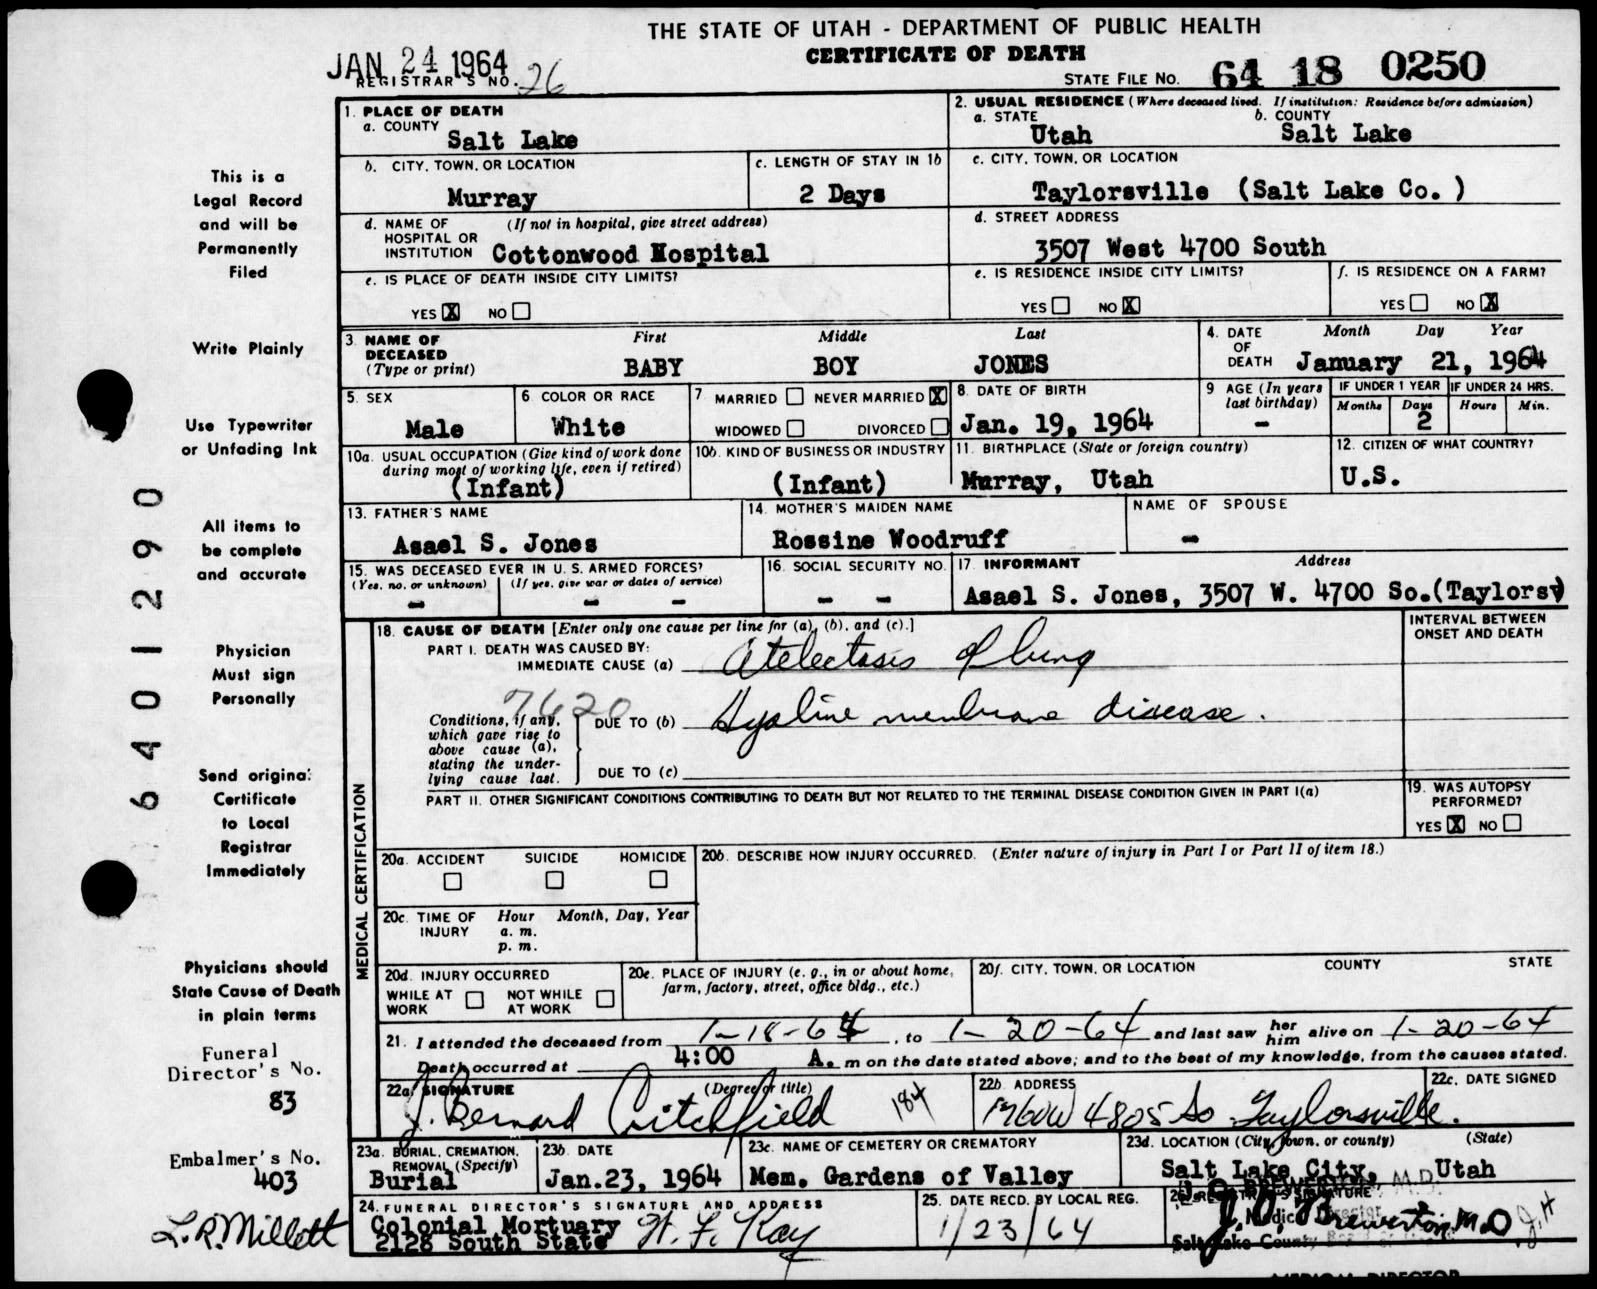 THE STATE OF UTAH - DEPARTMENT OF PUBLIC HEALTH
CERTIFICATE OF DEATH
JAN 24 1964
REGISTRAR'S NO. 26
STATE FILE NO. 64 18 0250
This is a
Legal Record
and will be
Permanently
Filed
Write Plainly
Use Typewriter
or Unfading Ink
All items to
be complete
and accurate
Physician
Must sign
Personally
Send original
Certificate
to Local
Registrar
Immediately
Physicians should
State Cause of Death
in plain terms
Funeral
Director's No.
83
Embalmer's No.
403
L. R. Millett
6401290
1. PLACE OF DEATH
a. COUNTY
Salt Lake
2. USUAL RESIDENCE (Where deceased lived. If institution: Residence before admission)
a. STATE b. COUNTY
Utah Salt Lake
b. CITY, TOWN, OR LOCATION
Murray
c. LENGTH OF STAY IN 1b
2 Days
c. CITY, TOWN, OR LOCATION
Taylorsville (Salt Lake Co. )
d. NAME OF (If not in hospital, give street address)
HOSPITAL OR
INSTITUTION Cottonwood Hospital
d. STREET ADDRESS
3507 West 4700 South
e. IS PLACE OF DEATH INSIDE CITY LIMITS?
YES X NO
e. IS RESIDENCE INSIDE CITY LIMITS?
YES NO X
f. IS RESIDENCE ON A FARM?
YES NO X
3. NAME OF First Middle Last
DECEASED
(Type or print) BABY BOY JONES
4. DATE Month Day Year
OF
DEATH January 21, 1964
5. SEX
Male
6 COLOR OR RACE
White
7 MARRIED NEVER MARRIED X
WIDOWED DIVORCED
8. DATE OF BIRTH
Jan. 19, 1964
9 AGE (In years
last birthday)
-
IF UNDER 1 YEAR IF UNDER 24 HRS.
Months Days Hours Min.
2
10a. USUAL OCCUPATION (Give kind of work done
during most of working life, even if retired)
(Infant)
10b. KIND OF BUSINESS OR INDUSTRY
(Infant)
11. BIRTHPLACE (State or foreign country)
Murray, Utah
12. CITIZEN OF WHAT COUNTRY?
U.S.
13. FATHER'S NAME
Asael S. Jones
14. MOTHER'S MAIDEN NAME
Rossine Woodruff
NAME OF SPOUSE
-
15. WAS DECEASED EVER IN U. S. ARMED FORCES?
(Yes, no. or unknown) (If yes, give war or dates of service)
- - -
16. SOCIAL SECURITY NO.
- -
17. INFORMANT Address
Asael S. Jones, 3507 W. 4700 So.(Taylorsv
MEDICAL CERTIFICATION
18. CAUSE OF DEATH [Enter only one cause per line for (a), (b), and (c).]
INTERVAL BETWEEN
ONSET AND DEATH
PART I. DEATH WAS CAUSED BY:
IMMEDIATE CAUSE (a) Atelectasis of lung
7620
Conditions, if any,
which gave rise to
above cause (a),
stating the under-
lying cause last.
DUE TO (b) Hyaline membrane disease.
DUE TO (c)
PART II. OTHER SIGNIFICANT CONDITIONS CONTRIBUTING TO DEATH BUT NOT RELATED TO THE TERMINAL DISEASE CONDITION GIVEN IN PART I(a)
19. WAS AUTOPSY
PERFORMED?
YES X NO
20a. ACCIDENT SUICIDE HOMICIDE
20b. DESCRIBE HOW INJURY OCCURRED. (Enter nature of injury in Part I or Part II of item 18.)
20c. TIME OF Hour Month, Day, Year
INJURY a. m.
p. m.
20d. INJURY OCCURRED
WHILE AT NOT WHILE
WORK AT WORK
20e. PLACE OF INJURY (e. g., in or about home,
farm, factory, street, office bldg., etc.)
20f. CITY, TOWN, OR LOCATION COUNTY STATE
21. I attended the deceased from 1-18-64, to 1-20-64 and last saw her him alive on 1-20-64
Death occurred at 4:00 A. m on the date stated above; and to the best of my knowledge, from the causes stated.
22a. SIGNATURE (Degree or title)
J. Bernard Critchfield 184
22b. ADDRESS
4805 So Taylorsville.
22c. DATE SIGNED
23a. BURIAL, CREMATION,
REMOVAL (Specify)
Burial
23b. DATE
Jan.23, 1964
23c. NAME OF CEMETERY OR CREMATORY
Mem. Gardens of Valley
23d. LOCATION (City, town, or county) (State)
Salt Lake City, Utah
24. FUNERAL DIRECTOR'S SIGNATURE AND ADDRESS
Colonial Mortuary
2128 South State
W. F. Kay
25. DATE RECD. BY LOCAL REG.
1/23/64
26. REGISTRAR'S SIGNATURE
J. D. Brewerton M.D
Medical Director
Salt Lake County
MEDICAL DIRECTOR